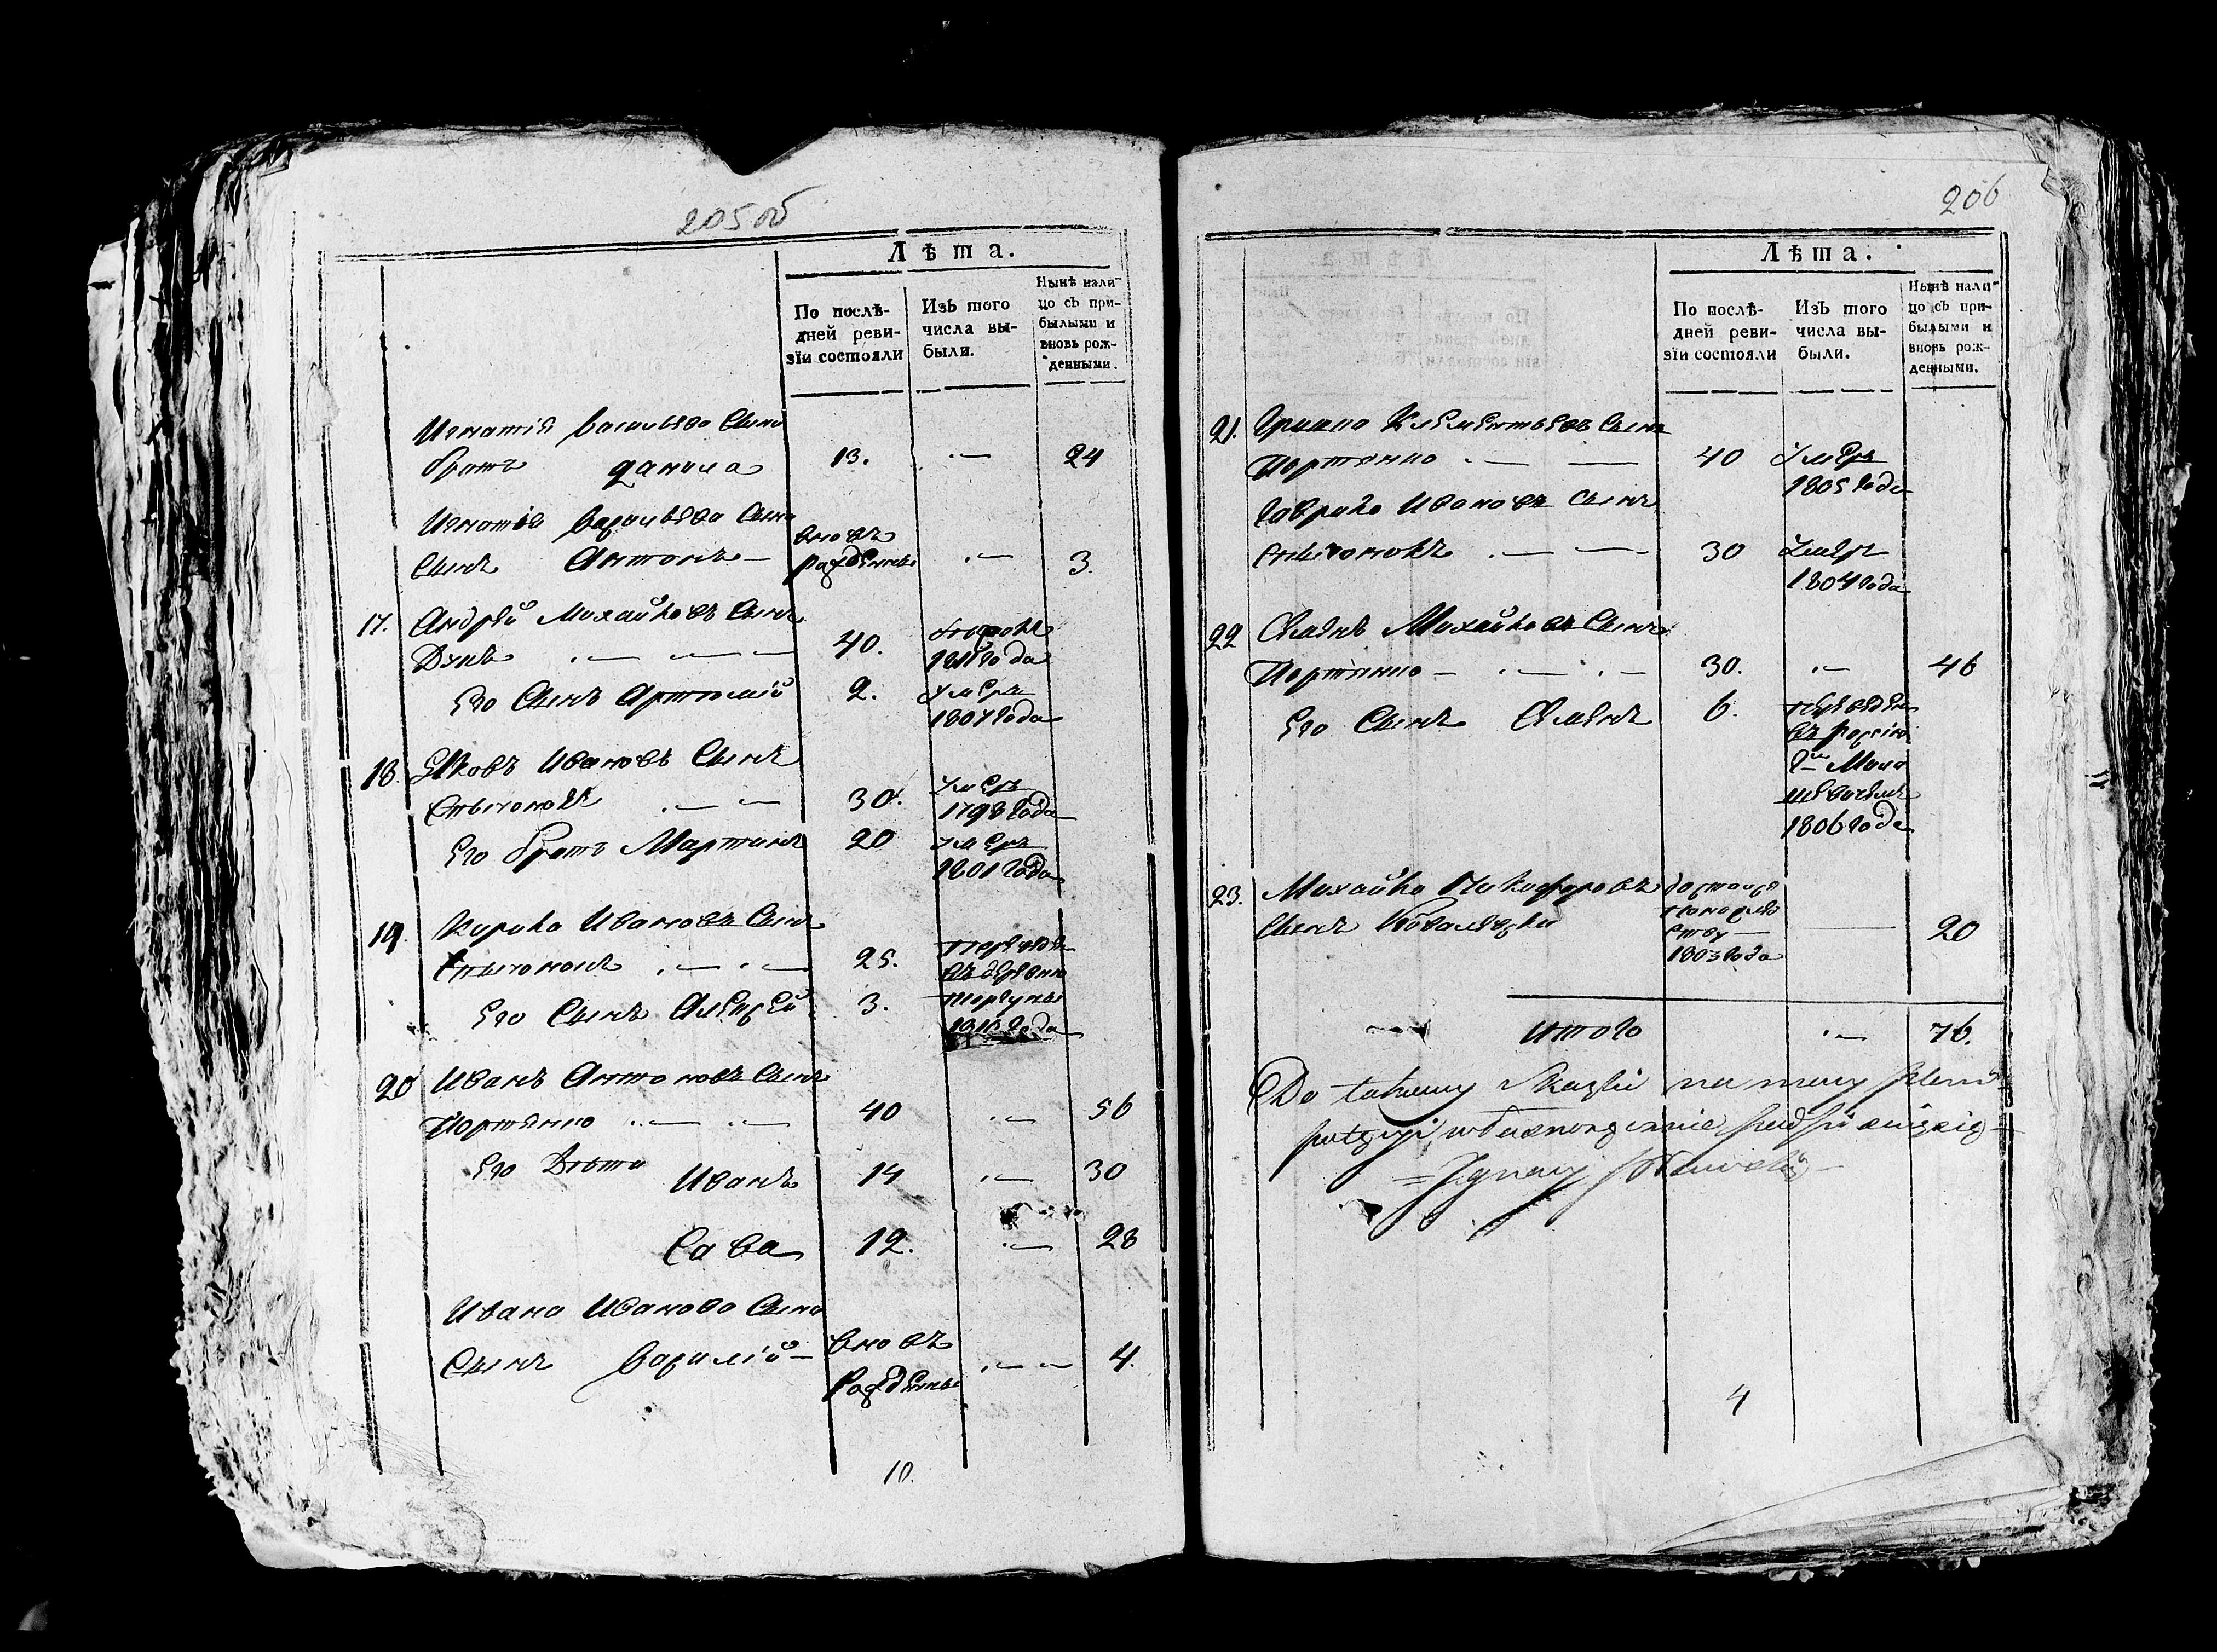 205 об
Лѣта.
По послѣ-
дней реви-
зїи состояли
Изъ того
числа вы-
были.
Нынѣ нали-
цо съ при-
былыми и
вновь рож-
денными.
Игнатія Васильева Сына
братъ Данила 13. 24
Игнатія Васильева Сына
вновъ
Сынъ Антонъ рожденны 3.
17. Андрей Михайловъ Сынъ
40.
1811 года
Его Сынъ Артемій 2. умеръ
1807 года
18. Яковъ Ивановъ Сынъ
30. умеръ
1798 года
Его братъ Мартинъ 20 умеръ
1801 года
19. Кирило Ивановъ Сынъ
25.
въ деревню
Его Сынъ Алексей 3.
1810 года
20 Иванъ Антоновъ Сынъ
Портянко 40 56
Его Дѣти Иванъ 14 30
Сава 12. 28
Ивана Иванова Сына
Сынъ Василій вновъ
рожденны 4.
10.
206
Лѣта.
По послѣ-
дней реви-
зїи состояли
Изъ того
числа вы-
были.
Нынѣ нали-
цо съ при-
былыми и
вновь рож-
денными.
21. Гришко Клементьевъ Сынъ
Портянко 40 умеръ
1805 года
Гаврило Ивановъ Сынъ
30 умеръ
1804 года
22 Семенъ Михайловъ Сынъ
Портянко 30. 46
Его Сынъ Семенъ 6. переведен
въ Россію
1806 года
23. Михайло Никифоровъ достался
Сынъ по наслѣд
ству 20
1803 года
итого 76.
Do takowey Skazki na mocy
własnoręcznie podpisuię się
Ignacy
4